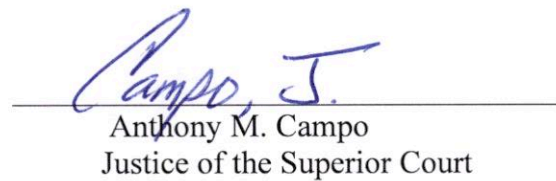 Campo, J.
Anthony M. Campo
Justice of the Superior Court